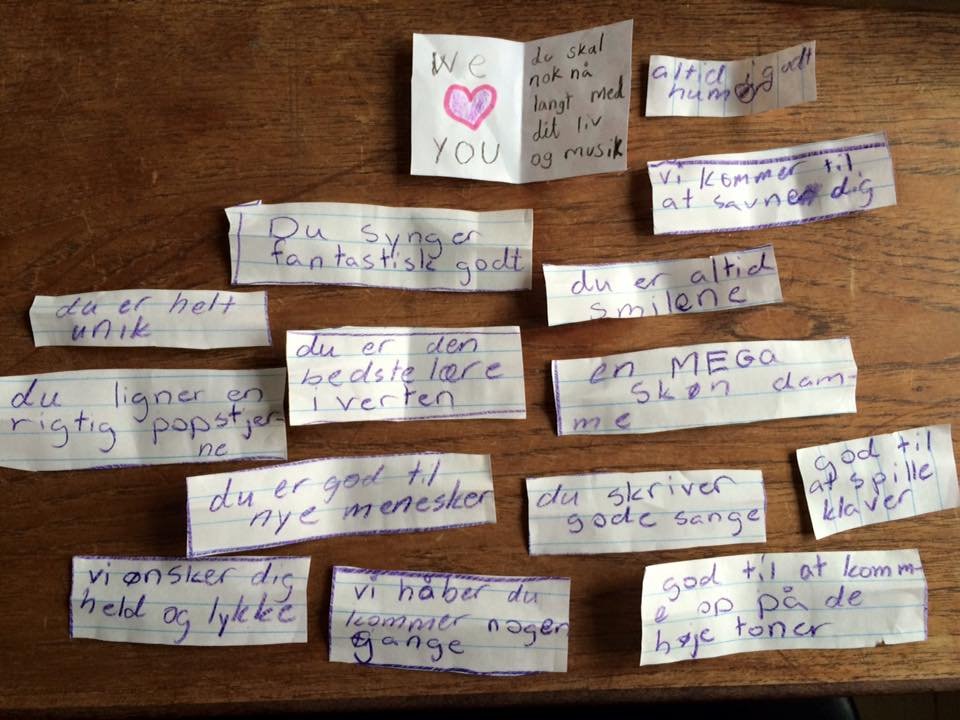 We
YOU
du skal
nok nå
langt med
dit liv
og musik
altid i godt
humø
vi kommer til
at savne dig
Du synger
fantastisk godt
du er altid
smilene
du er helt
unik
du er den
bedste lære
i verten
en MEGA
skøn dam-
me
du ligner en
rigtig popstjer-
ne
du er god til
nye menesker
du skriver
gode sange
god til
at spille
klaver
vi ønsker dig
held og lykke
vi håber du
kommer noger
gange
god til at komm-
e op på de
høje toner